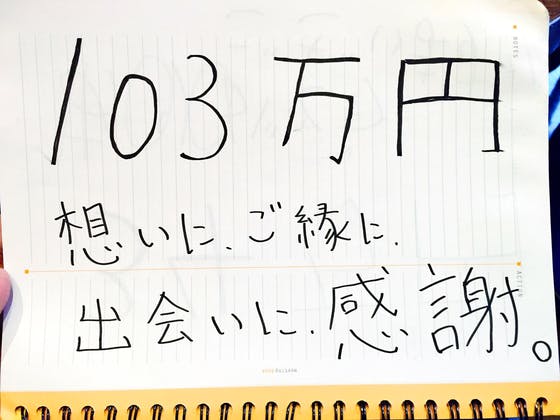 103万円
想いに、ご縁に、
出会いに、感謝。
NOTES
ACTION